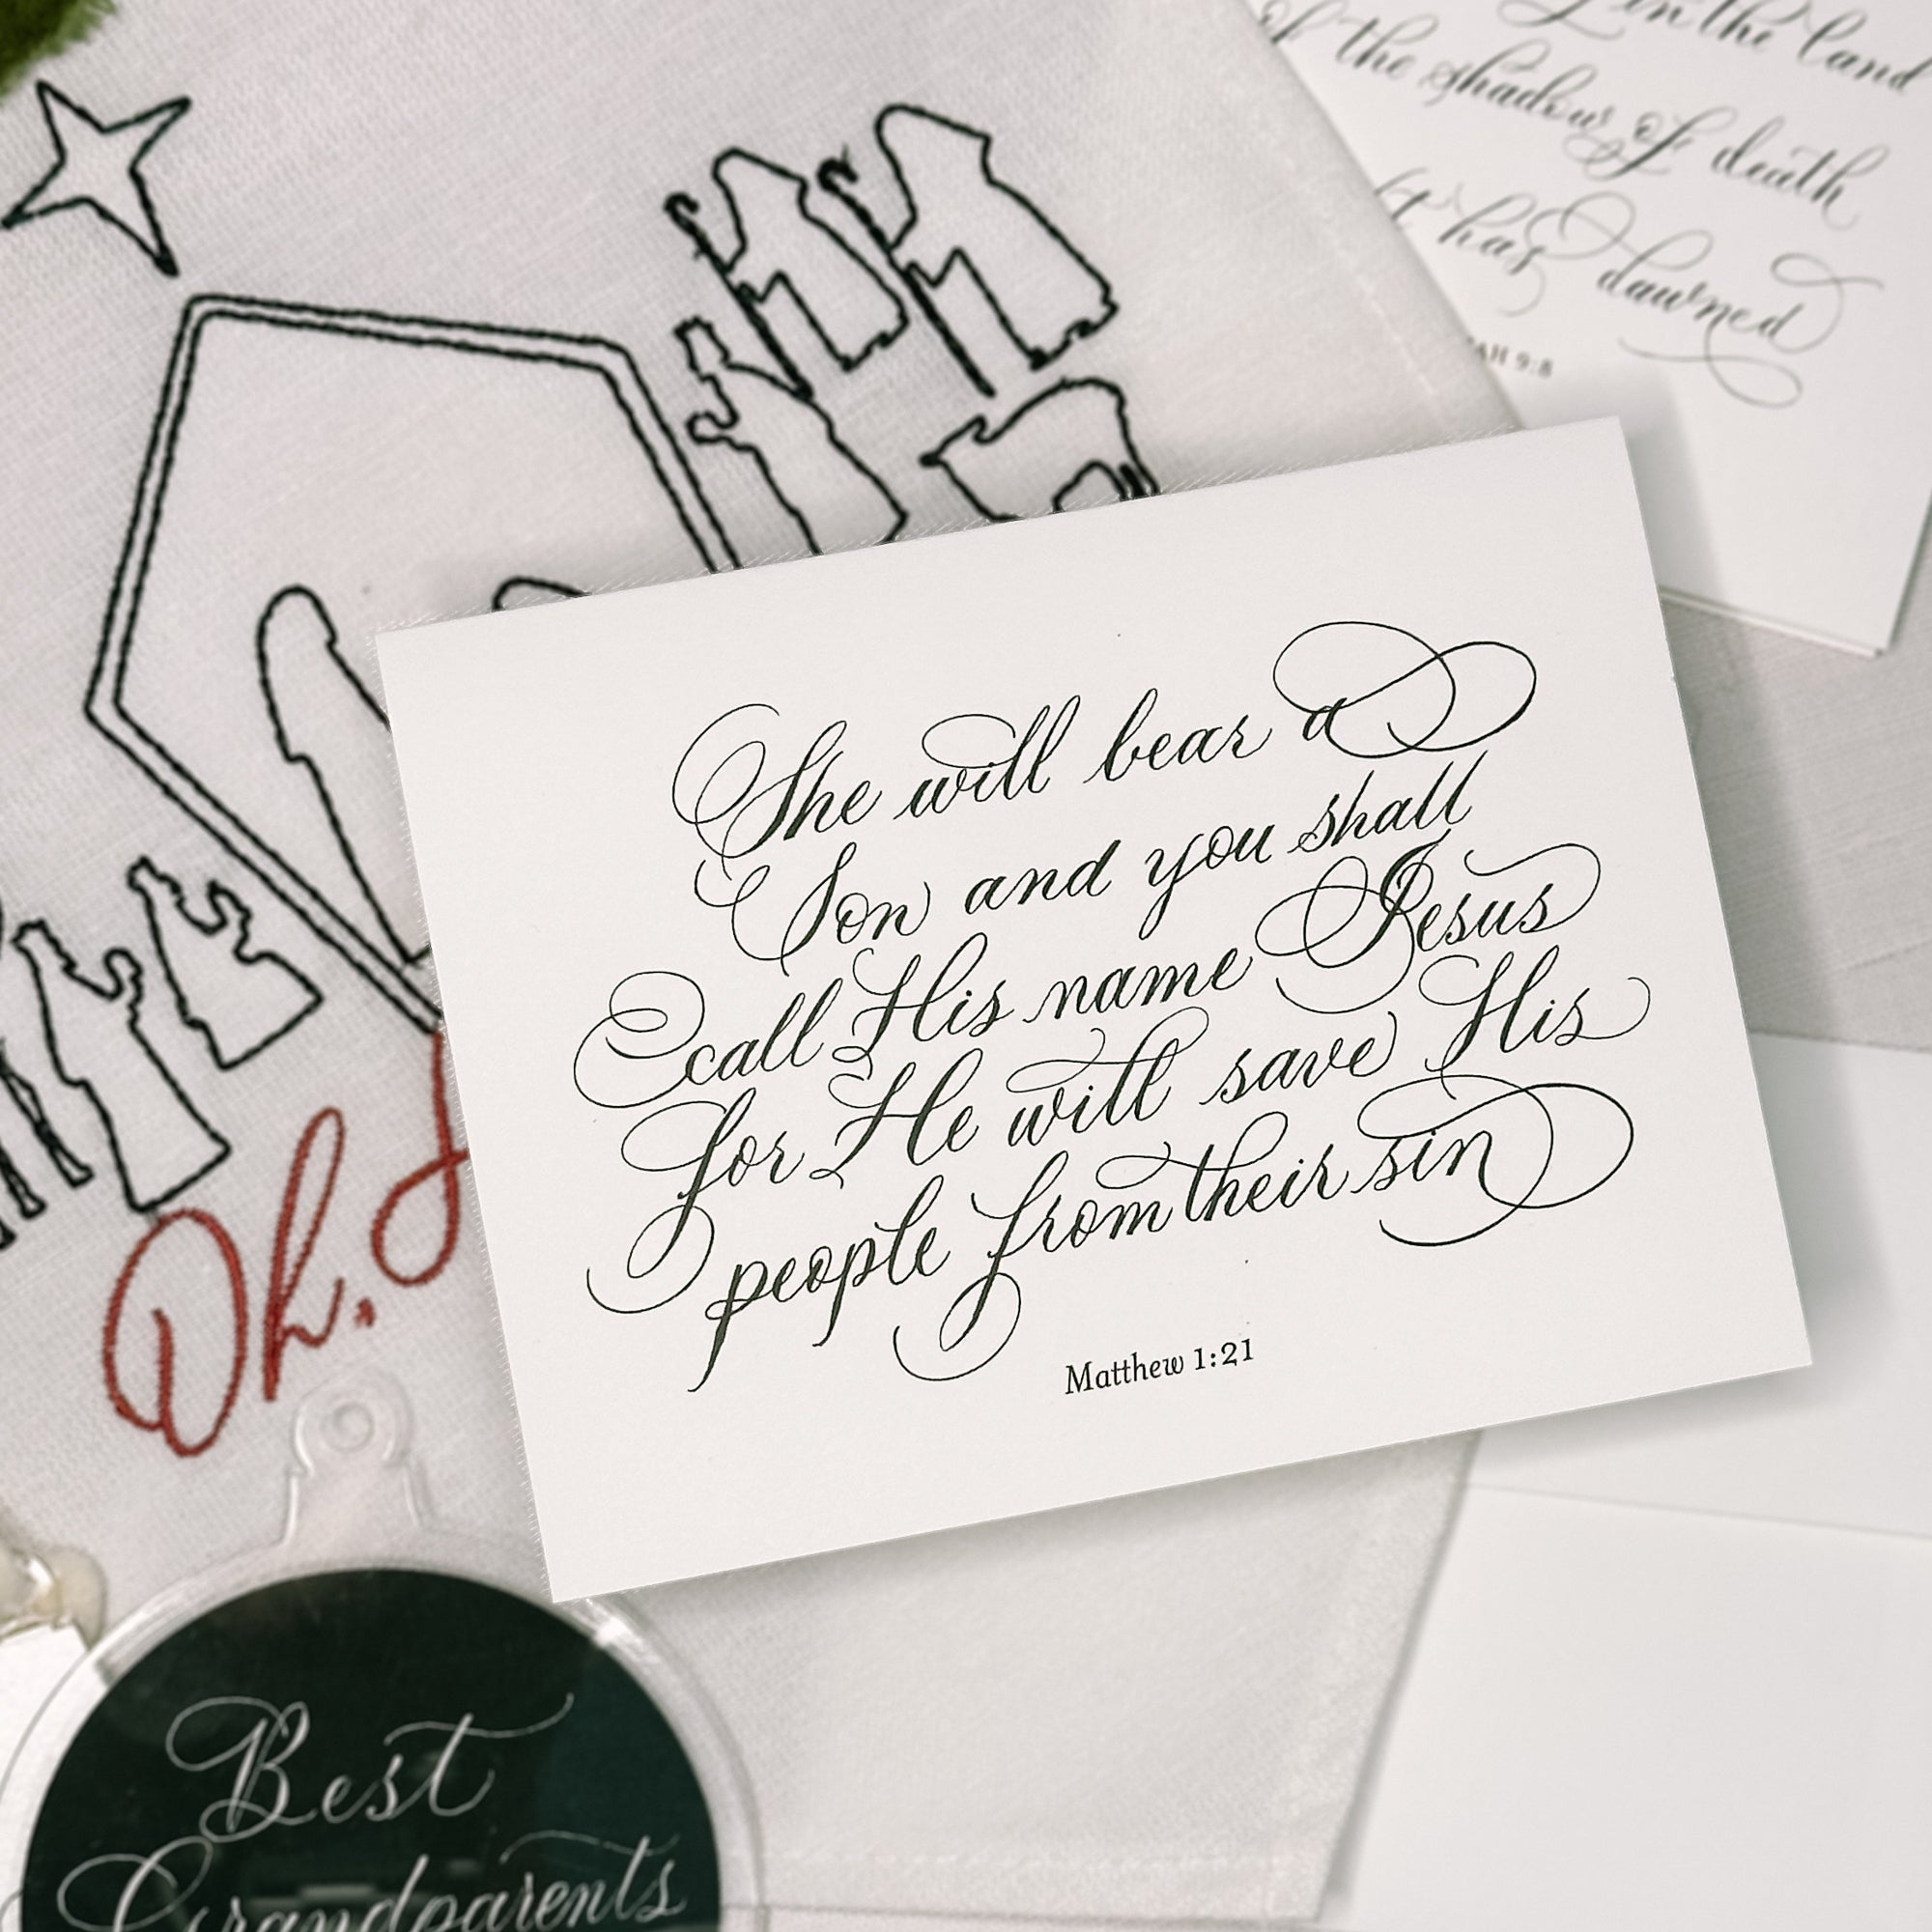 in the land
of the shadow of death
has dawned
9:8
She will bear a
Son and you shall
call His name Jesus
for He will save His
people from their sin
Matthew 1:21
Oh,
Best
Grandparents